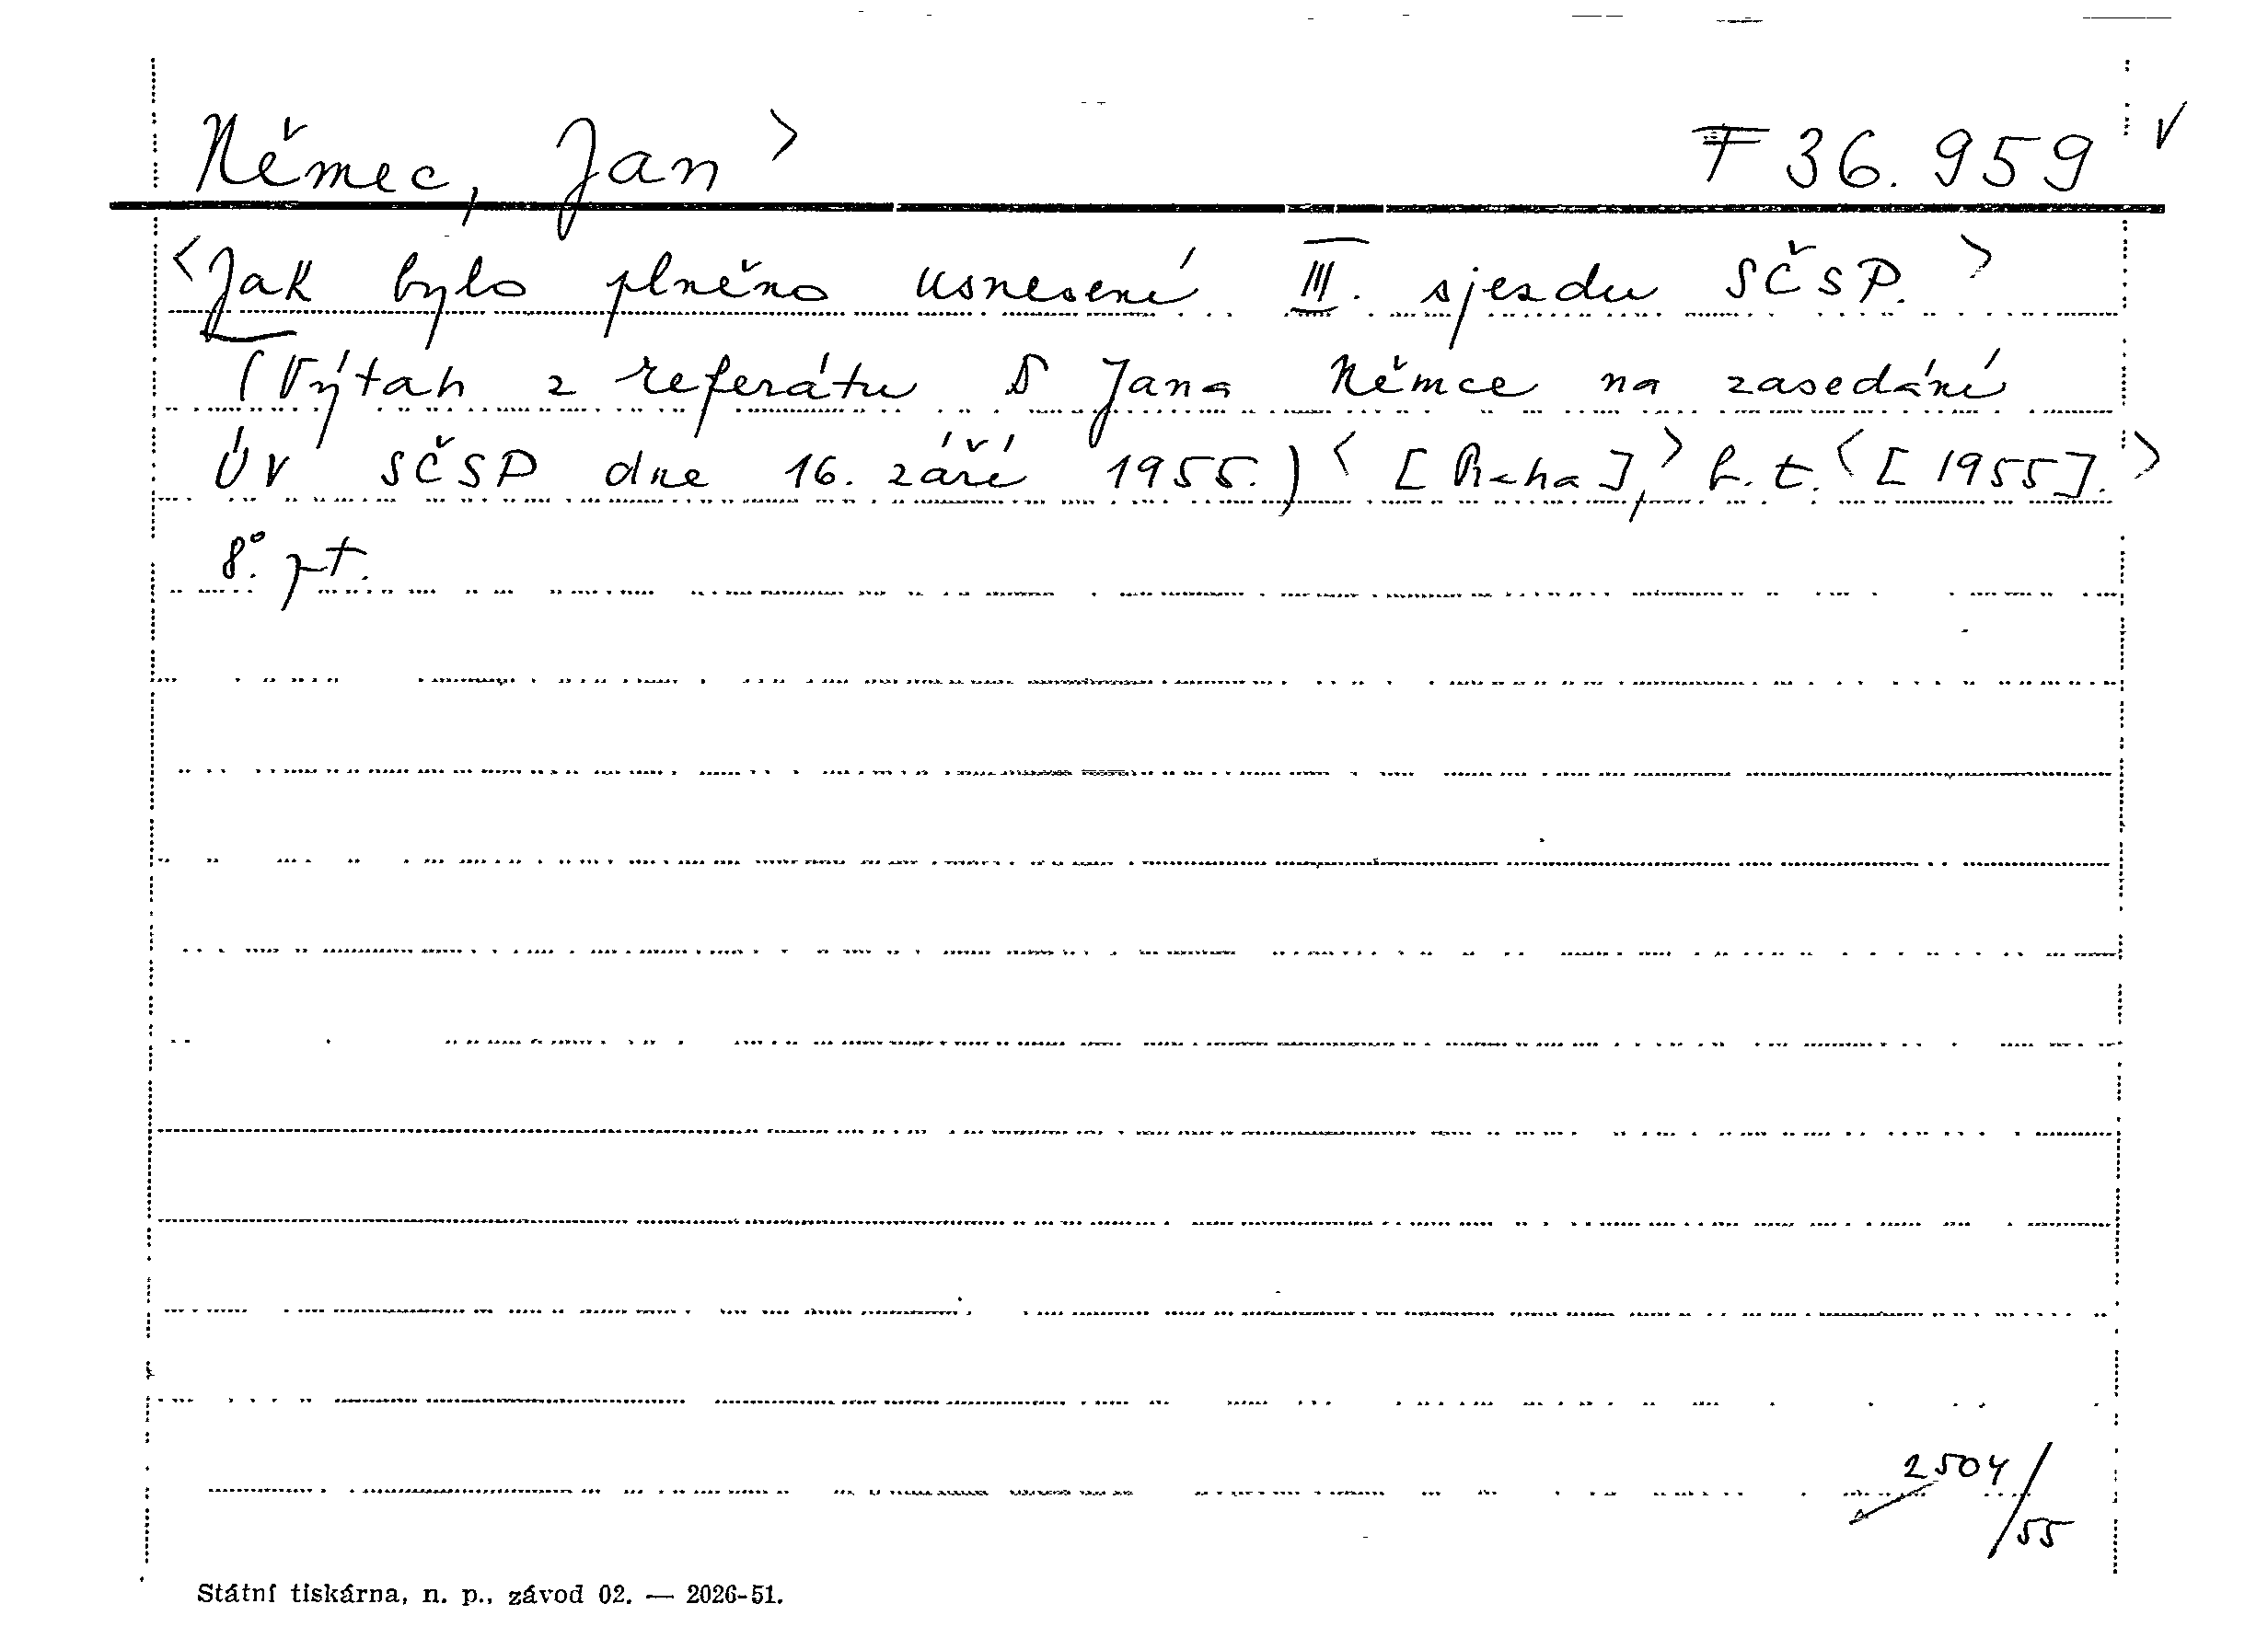 Němec, Jan > F 36.959 v
<Jak bylo plněno usnesení III. sjezdu SČSP.>
(Výtah z referátu S Jana Němce na zasedání
ÚV SČSP dne 16. září 1955.) <[Praha],> b. t. <[1955].>
8°. pt.
2504/55
Státní tiskárna, n. p., závod 02. — 2026-51.